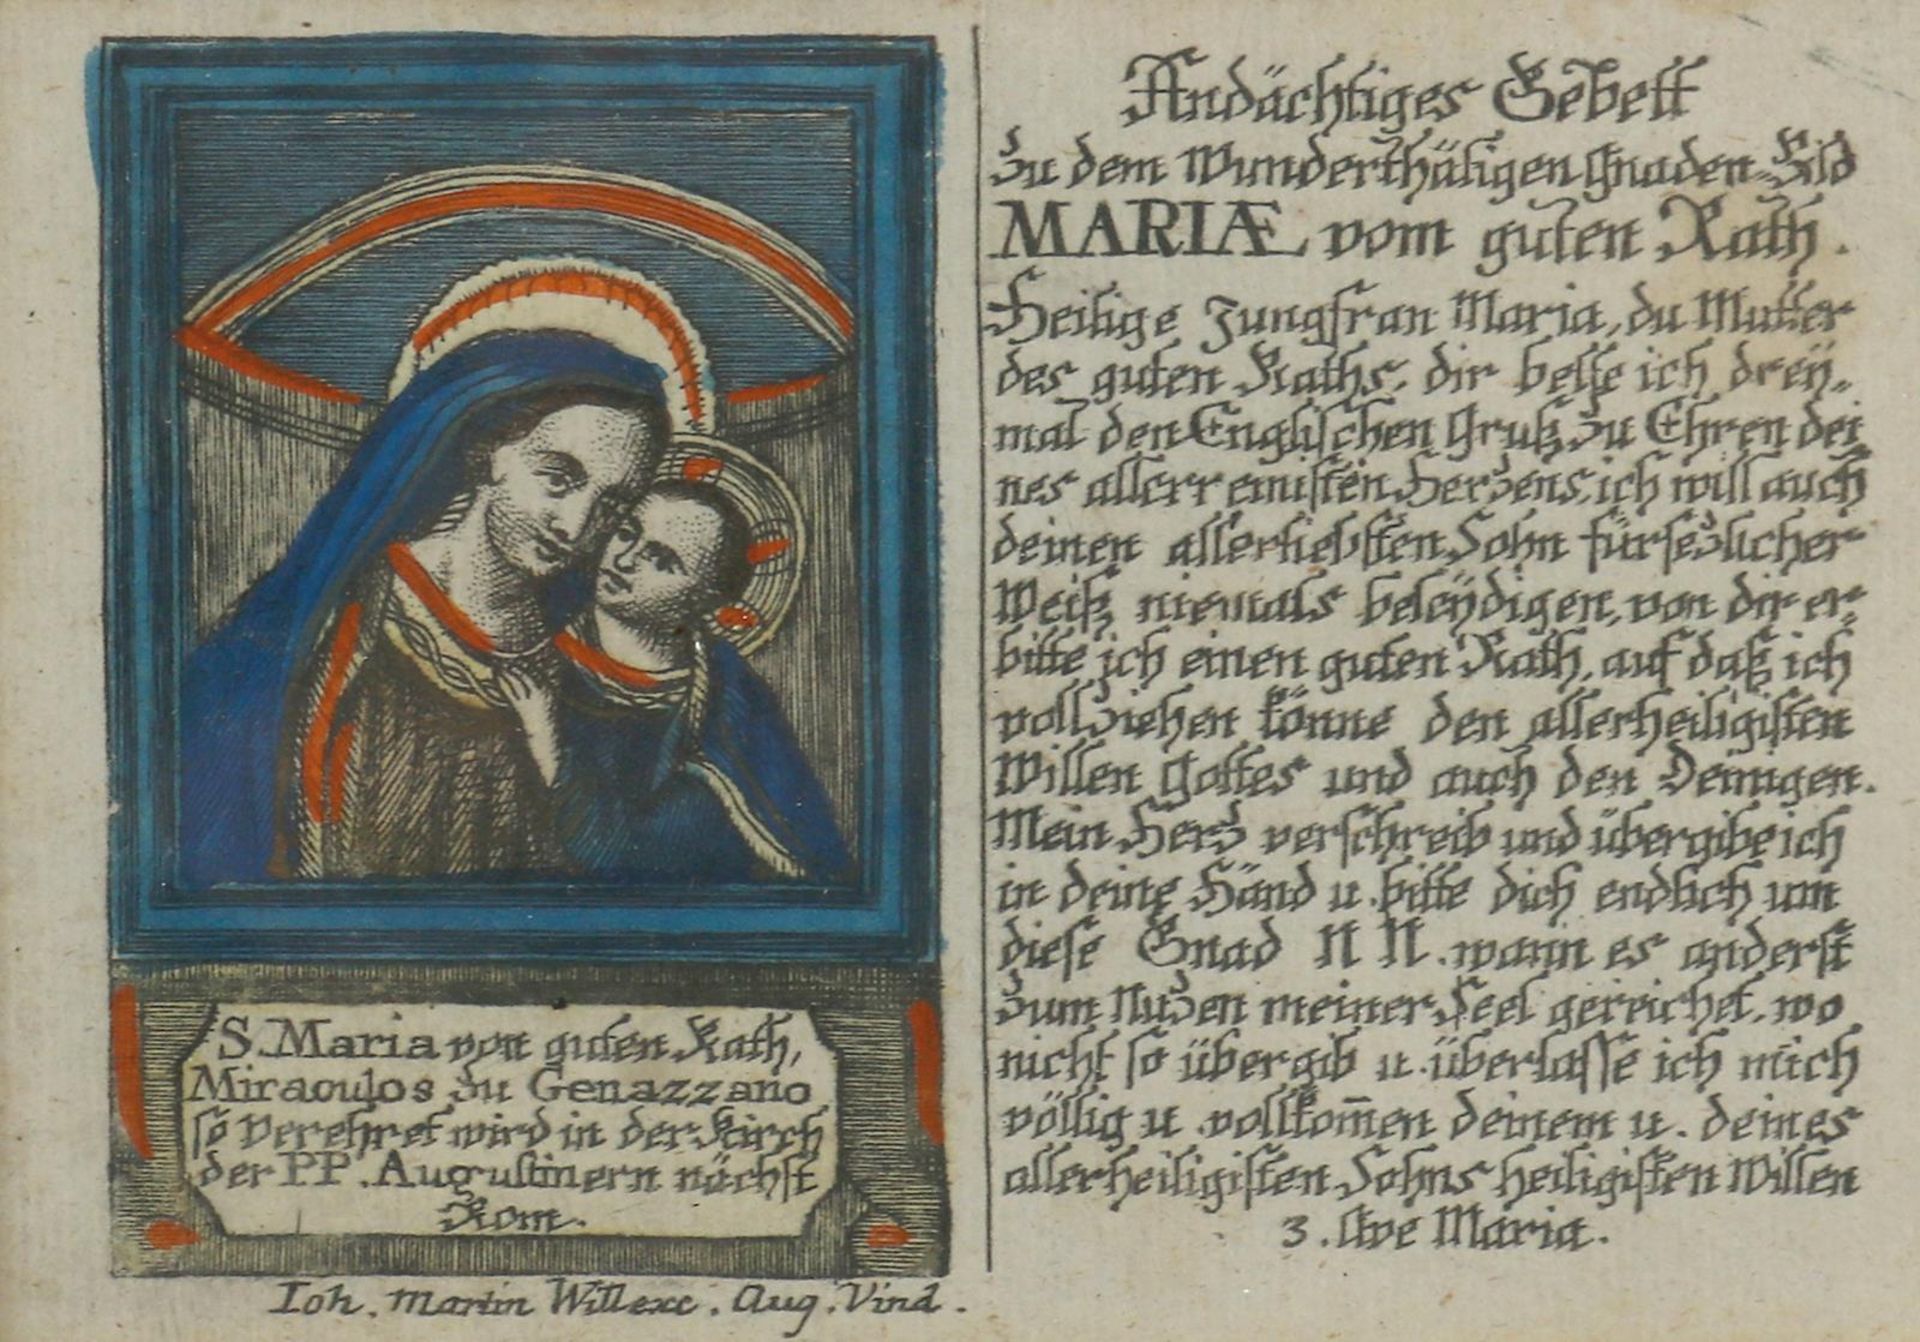 S. Maria von guten Rath,
Miraculos zu Genazzano
so verehret wird in der Kirch
der PP. Augustinern nächst
Rom.
Joh. Martin Will exc. Aug. Vind.
Andächtiges Gebett
Zu dem Wunderthätigen Gnaden-Bild
MARIÆ vom guten Rath.
Heilige Jungfrau Maria, du Mutter
des guten Raths, dir bette ich dreÿ-
mal den Englischen Gruß zu Ehren dei
nes allerreinisten Herzens, ich will auch
deinen allerliebsten Sohn fürsezlicher
Weiß niemals beleÿdigen, von dir er-
bitte ich einen guten Rath, auf daß ich
vollziehen könne den allerheiligisten
Willen Gottes und auch den Deinigen.
Mein Herz verschreib und übergibe ich
in deine Händ u. bitte dich endlich um
diese Gnad N N. wann es anderst
zum Nuzen meiner Seel gereichet, wo
nicht so übergib u. überlasse ich mich
völlig u. vollkom̅en deinem u. deines
allerheiligisten Sohns heiligisten Willen
3. Ave Maria.